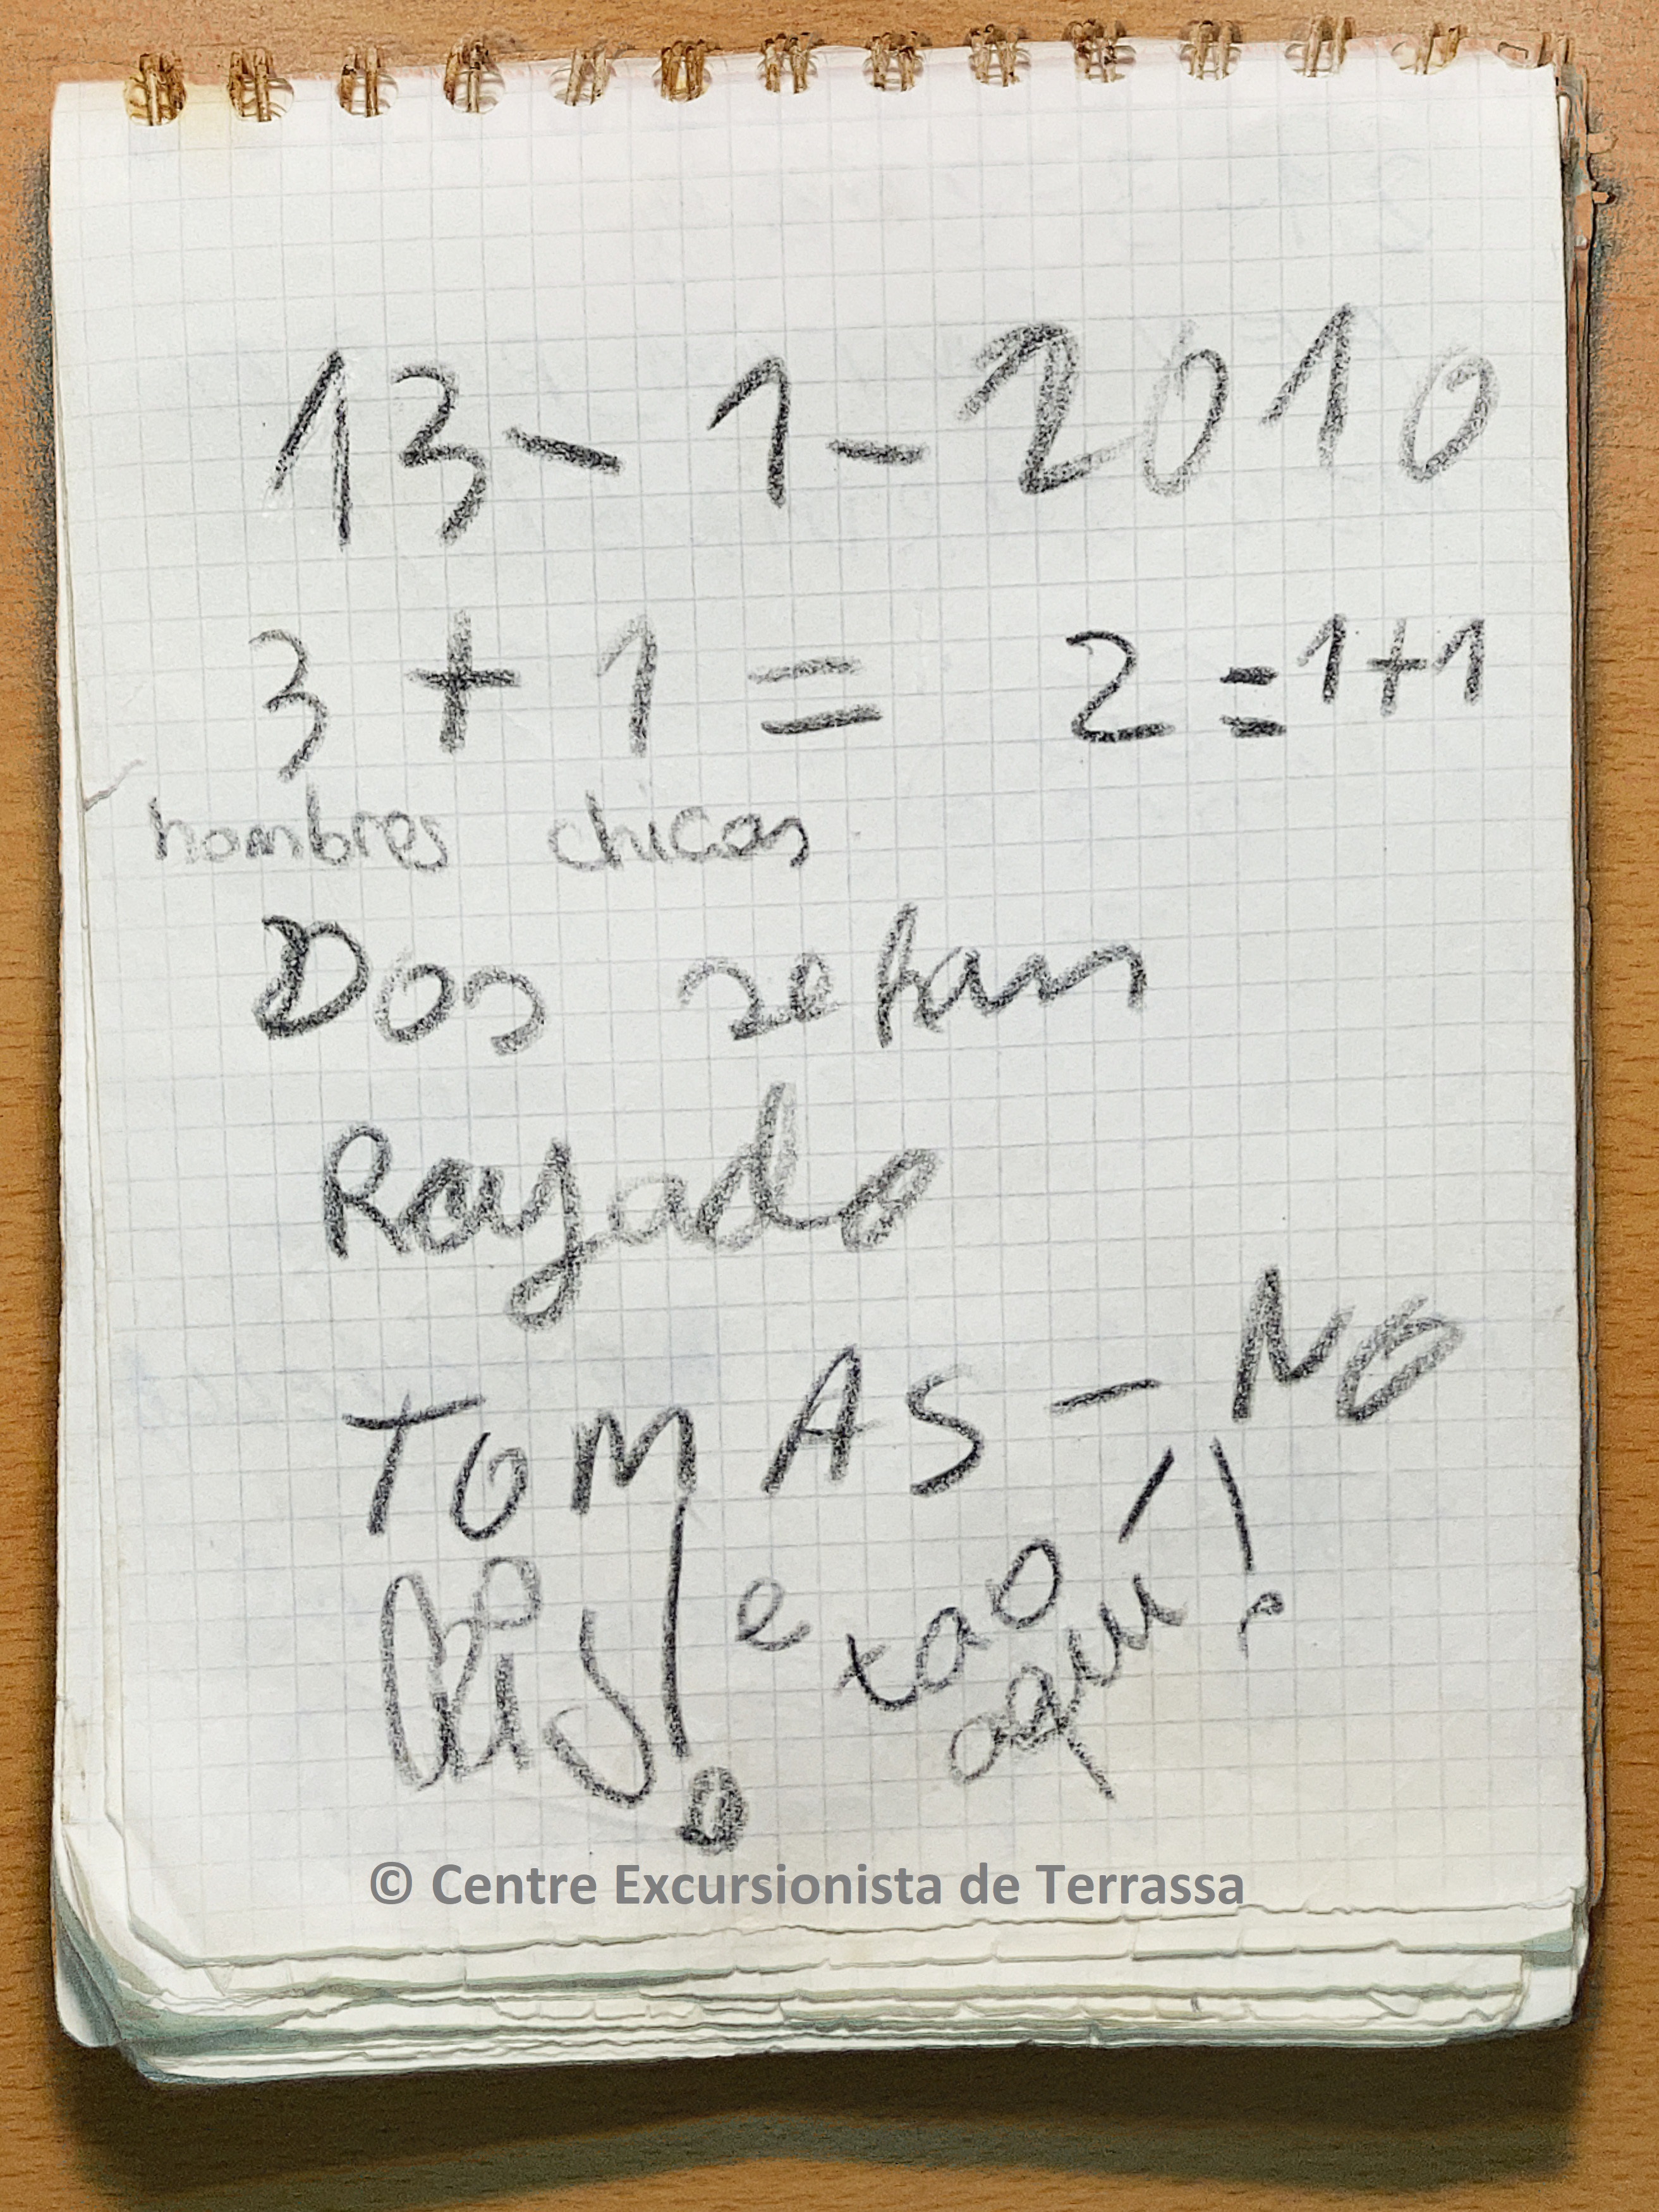 13-1-2010
3 + 1 = 2 = 1+1
hombres chicas
Dos se han
Rayado
TOMAS - NO
aquí!
© Centre Excursionista de Terrassa